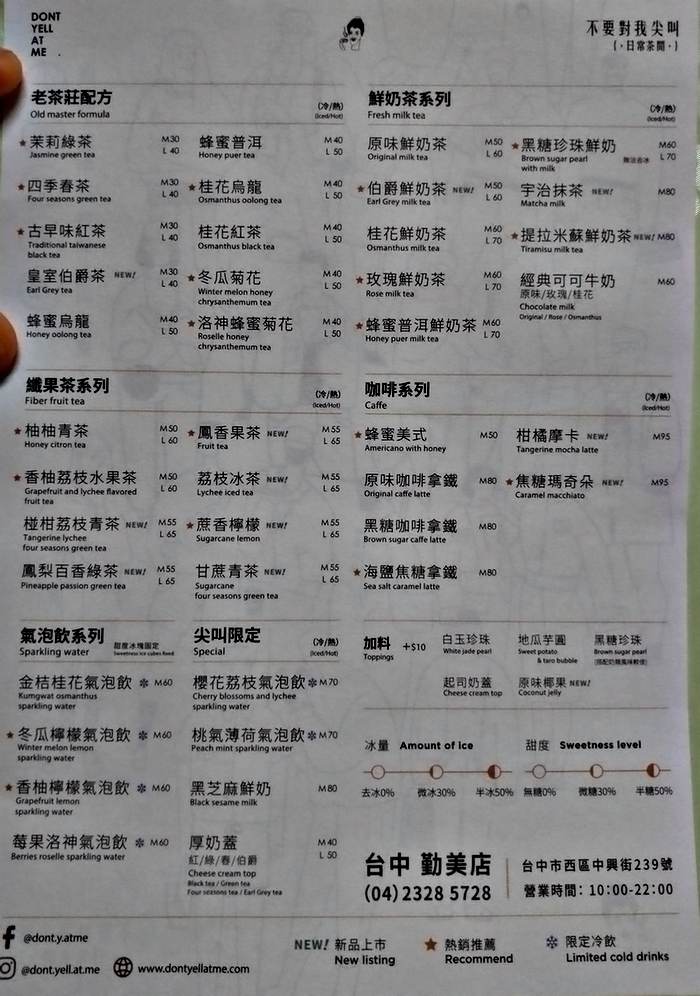 DONT
YELL
AT
ME .
不要對我尖叫
(·日常茶間·)
老茶莊配方 (冷/熱)
Old master formula (Iced/Hot)
★茉莉綠茶 M30
Jasmine green tea L 40
蜂蜜普洱 M40
Honey puer tea L 50
★四季春茶 M30
Four seasons green tea L 40
★桂花烏龍 M40
Osmanthus oolong tea L 50
★古早味紅茶 M30
Traditional taiwanese L 40
black tea
桂花紅茶 M40
Osmanthus black tea L 50
皇室伯爵茶 NEW! M30
Earl Grey tea L 40
★冬瓜菊花 M40
Winter melon honey L 50
chrysanthemum tea
蜂蜜烏龍 M40
Honey oolong tea L 50
★洛神蜂蜜菊花 M40
Roselle honey L 50
chrysanthemum tea
鮮奶茶系列 (冷/熱)
Fresh milk tea (Iced/Hot)
原味鮮奶茶 M50
Original milk tea L 60
★黑糖珍珠鮮奶 M60
Brown sugar pearl 無法去冰 L 70
with milk
★伯爵鮮奶茶 NEW! M50
Earl Grey milk tea L 60
宇治抹茶 NEW! M80
Matcha milk
桂花鮮奶茶 M60
Osmanthus milk tea L 70
★提拉米蘇鮮奶茶 NEW! M80
Tiramisu milk tea
★玫瑰鮮奶茶 M60
Rose milk tea L 70
經典可可牛奶 M60
原味/玫瑰/桂花
Chocolate milk
Original / Rose / Osmanthus
★蜂蜜普洱鮮奶茶 M60
Honey puer milk tea L 70
纖果茶系列 (冷/熱)
Fiber fruit tea (Iced/Hot)
★柚柚青茶 M50
Honey citron tea L 60
★鳳香果茶 NEW! M55
Fruit tea L 65
★香柚荔枝水果茶 M50
Grapefruit and lychee flavored L 60
fruit tea
荔枝冰茶 NEW! M55
Lychee iced tea L 65
椪柑荔枝青茶 NEW! M55
Tangerine lychee L 65
four seasons green tea
★蔗香檸檬 NEW! M55
Sugarcane lemon L 65
鳳梨百香綠茶 NEW! M55
Pineapple passion green tea L 65
甘蔗青茶 NEW! M55
Sugarcane L 65
four seasons green tea
咖啡系列 (冷/熱)
Caffe (Iced/Hot)
★蜂蜜美式 M50
Americano with honey
柑橘摩卡 NEW! M95
Tangerine mocha latte
原味咖啡拿鐵 M80
Original caffe latte
★焦糖瑪奇朵 NEW! M95
Caramel macchiato
黑糖咖啡拿鐵 M80
Brown sugar caffe latte
★海鹽焦糖拿鐵 M80
Sea salt caramel latte
氣泡飲系列 甜度冰塊固定
Sparkling water Sweetness ice cubes fixed
金桔桂花氣泡飲 ❄ M60
Kumgwat osmanthus
sparkling water
★冬瓜檸檬氣泡飲 ❄ M60
Winter melon lemon
sparkling water
★香柚檸檬氣泡飲 ❄ M60
Grapefruit lemon
sparkling water
莓果洛神氣泡飲 ❄ M60
Berries roselle sparkling water
尖叫限定 (冷/熱)
Special (Iced/Hot)
櫻花荔枝氣泡飲 ❄ M70
Cherry blossoms and lychee
sparkling water
桃氣薄荷氣泡飲 ❄ M70
Peach mint sparkling water
黑芝麻鮮奶 M80
Black sesame milk
厚奶蓋 M40
紅/綠/春/伯爵 L 50
Cheese cream top
Black tea / Green tea
Four seasons tea / Earl Grey tea
加料 +$10
Toppings
白玉珍珠
White jade pearl
地瓜芋圓
Sweet potato
& taro bubble
黑糖珍珠
Brown sugar pearl
起司奶蓋
Cheese cream top
原味椰果 NEW!
Coconut jelly
冰量 Amount of ice
去冰0% 微冰30% 半冰50%
甜度 Sweetness level
無糖0% 微糖30% 半糖50%
台中 勤美店
(04)2328 5728
台中市西區中興街239號
營業時間：10:00-22:00
@dont.y.atme
@dont.yell.at.me www.dontyellatme.com
NEW! 新品上市
New listing
★ 熱銷推薦
Recommend
❄ 限定冷飲
Limited cold drinks